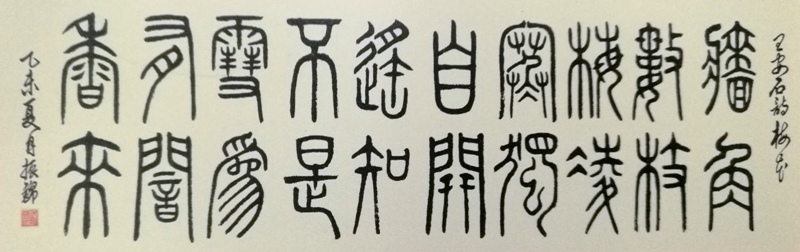 王安石詩梅花
牆角
數枝
梅凌
寒獨
自開
遙知
不是
雪爲
有闇
香來
乙未夏月振錦